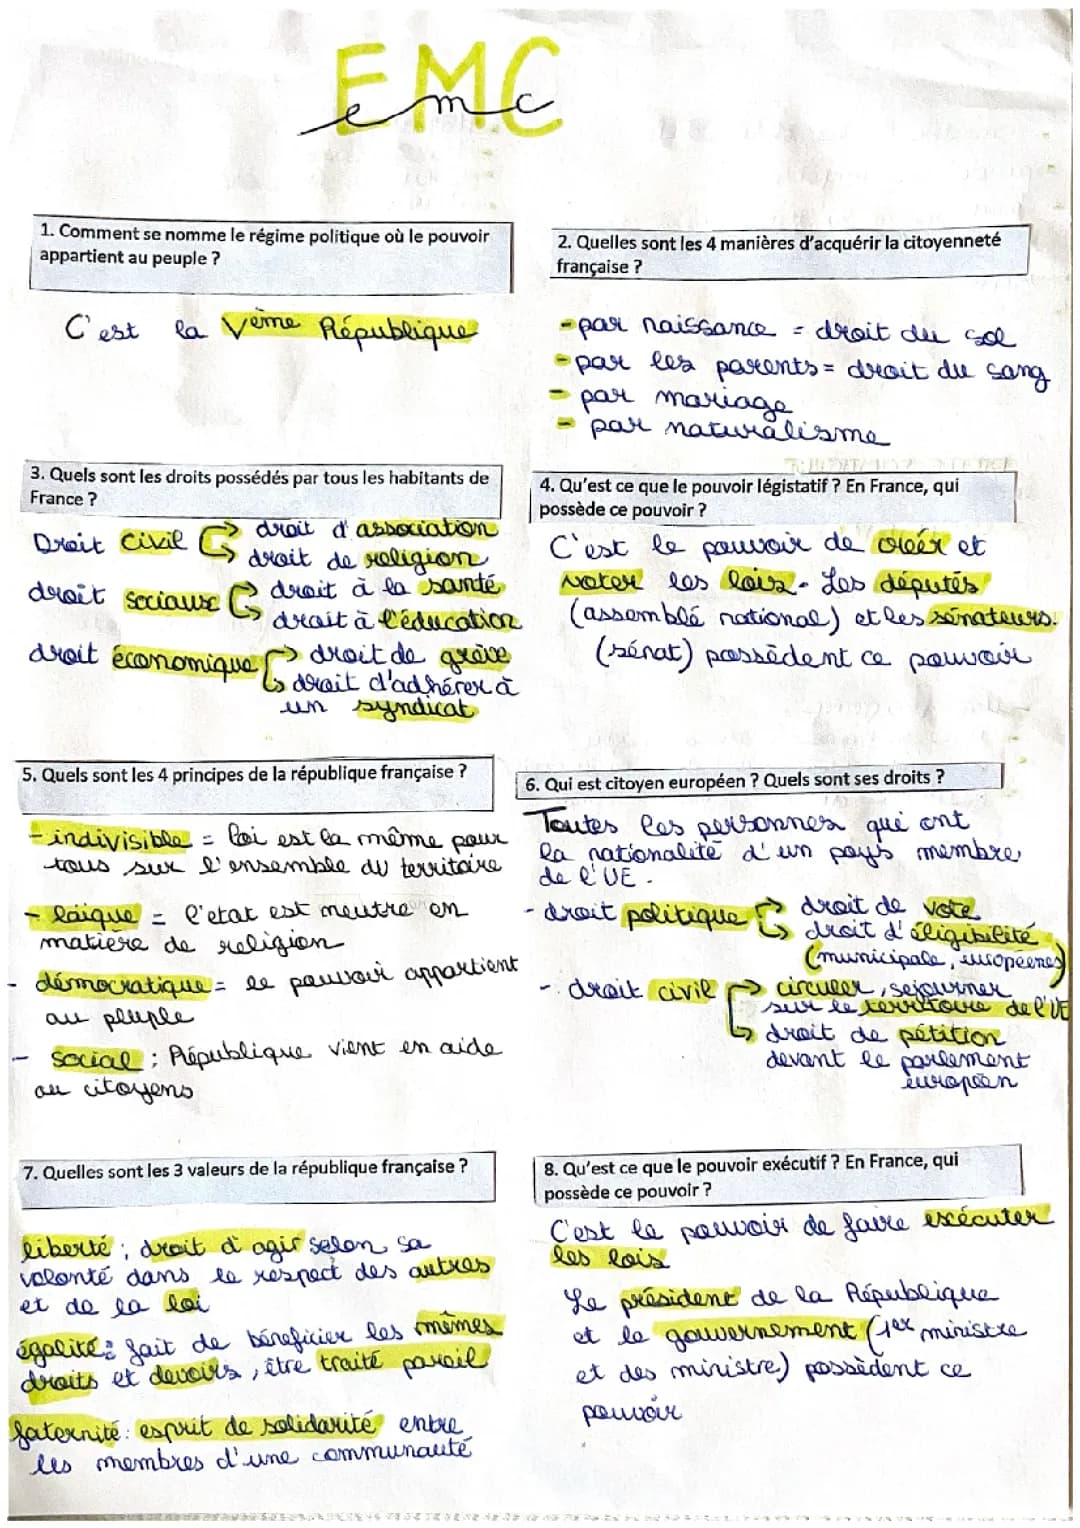 EMC
emc
1. Comment se nomme le régime politique où le pouvoir
appartient au peuple ?
C'est la Vème République
2. Quelles sont les 4 manières d'acquérir la citoyenneté
française ?
- par naissance = droit du sol
- par les parents = droit du sang
- par mariage
- par naturalisme
3. Quels sont les droits possédés par tous les habitants de
France ?
Droit civil → droit d'association
→ droit de religion
droit sociaux → droit à la santé
→ droit à l'éducation
droit économique → droit de grève
→ droit d'adhérer à
un syndicat
4. Qu'est ce que le pouvoir légistatif ? En France, qui
possède ce pouvoir ?
C'est le pouvoir de créér et
voter les lois. Les députés
(assemblé national) et les sénateurs.
(sénat) possèdent ce pouvoir
5. Quels sont les 4 principes de la république française ?
- indivisible = loi est la même pour
tous sur l'ensemble du territoire
- laïque = l'etat est neutre en
matière de religion
- démocratique = le pouvoir appartient
au peuple
- social : République vient en aide
au citoyens
6. Qui est citoyen européen ? Quels sont ses droits ?
Toutes les personnes qui ont
la nationalité d'un pays membre
de l'UE.
- droit politique → droit de vote
→ droit d'éligibilité
(municipale, européenes)
- droit civil → circuler, sejourner
sur le territoire de l'UE
→ droit de pétition
devant le parlement
européen
7. Quelles sont les 3 valeurs de la république française ?
liberté : droit d'agir selon sa
volonté dans le respect des autres
et de la loi
égalité : fait de béneficier les mêmes
droits et devoirs, être traité pareil
faternité : esprit de solidarité entre
les membres d'une communauté
8. Qu'est ce que le pouvoir exécutif ? En France, qui
possède ce pouvoir ?
C'est le pouvoir de faire exécuter
les lois
Le président de la République
et le gouvernement (1er ministre
et des ministre) possèdent ce
pouvoir